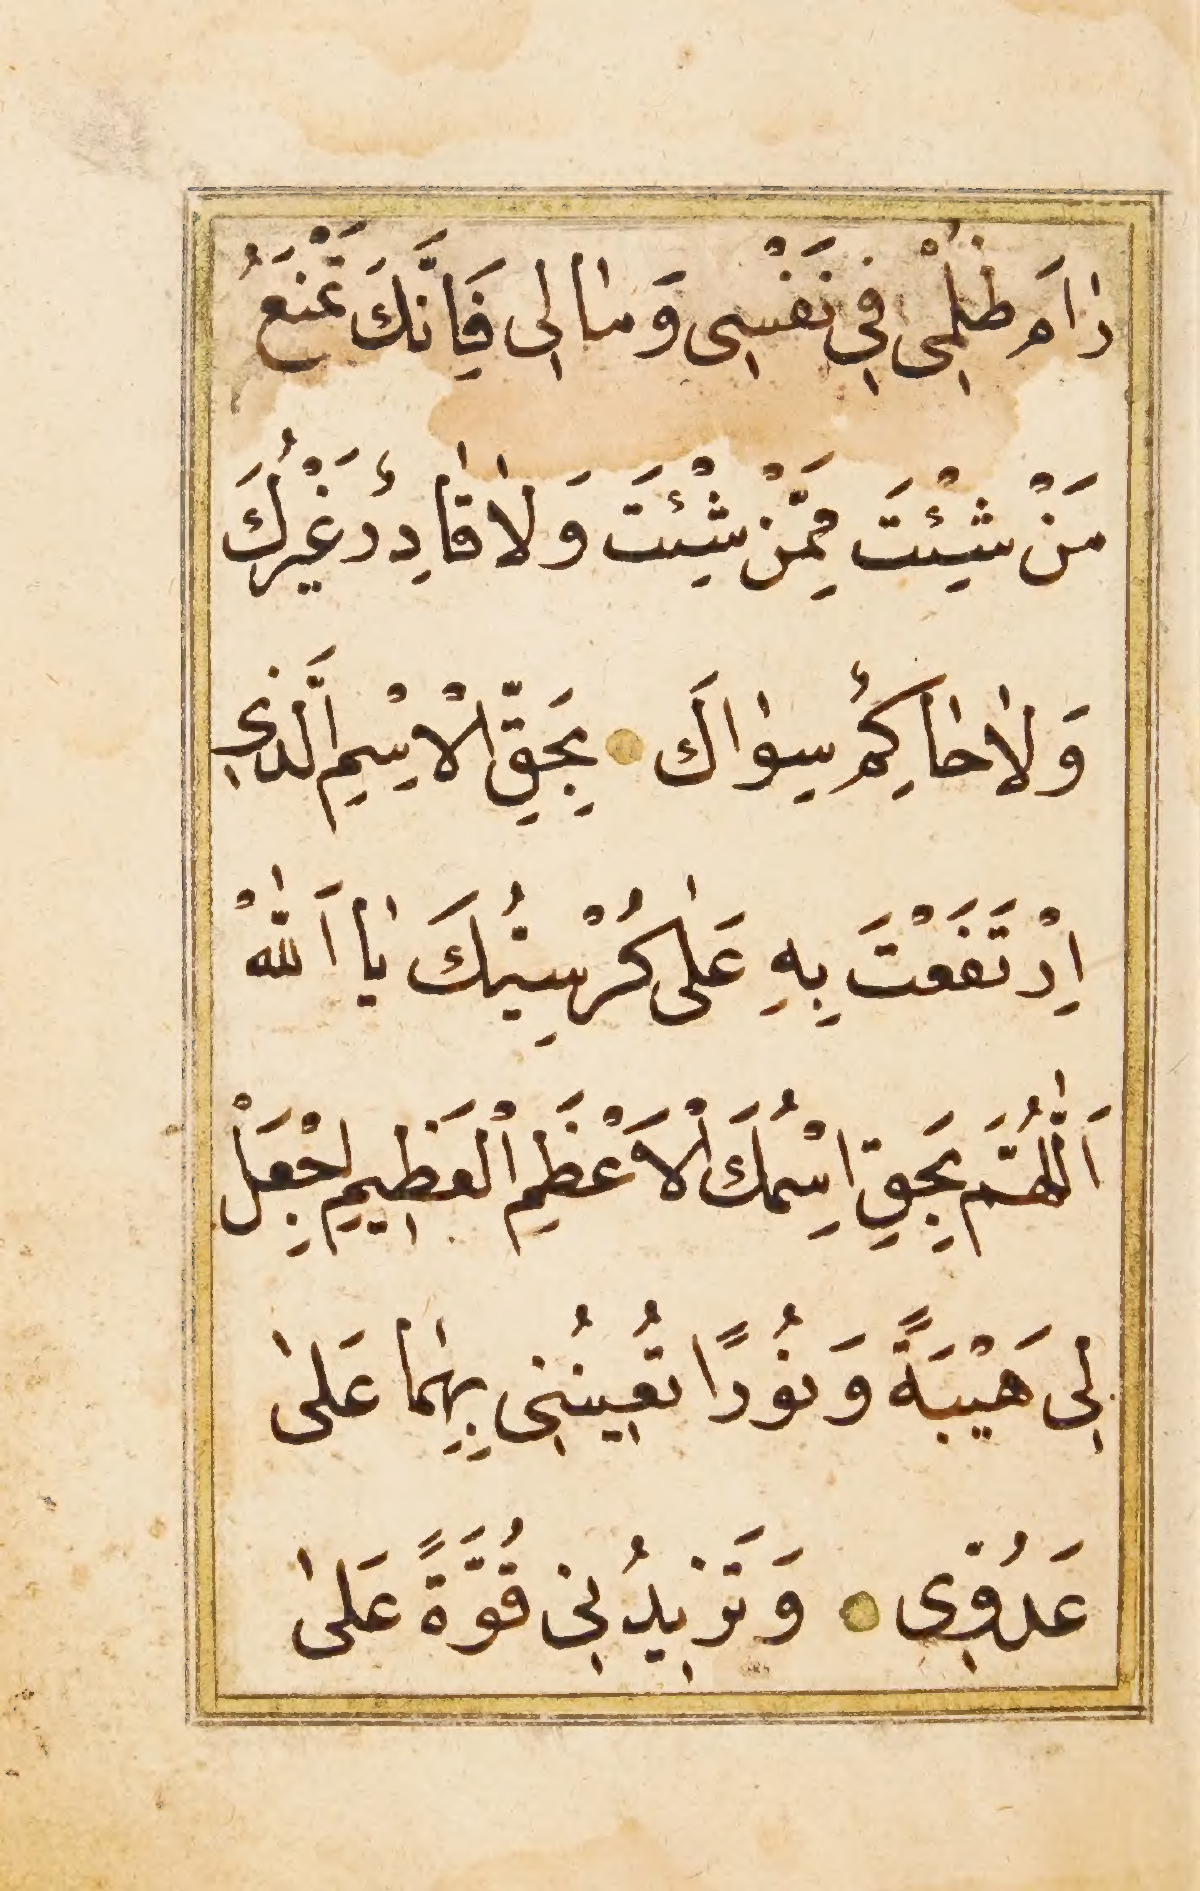 رٰامَ ظُلْمِى فِى نَفْسِى وَمٰالِى فَاِنَّكَ تَمْنَعُ
مَنْ شِئْتَ مِمَّنْ شِئْتَ وَلٰا قٰادِرٌ غَيْرُكَ
وَلٰا حٰاكِمٌ سِوٰاكَ ۝ بِحَقِّ الْاِسْمِ الَّذِى
اِرْتَفَعْتَ بِهِ عَلٰى كُرْسِيُّكَ يٰا اَللّٰهْ
اَللّٰهُمَّ بِحَقِّ اِسْمُكَ الْاَعْظَمِ الْعَظِيمِ اجْعَلْ
لِى هَيْبَةً وَنُورًا تُعِينُنِى بِهِمٰا عَلٰى
عَدُوِّى ۝ وَتَزِيدُنِى قُوَّةً عَلٰى